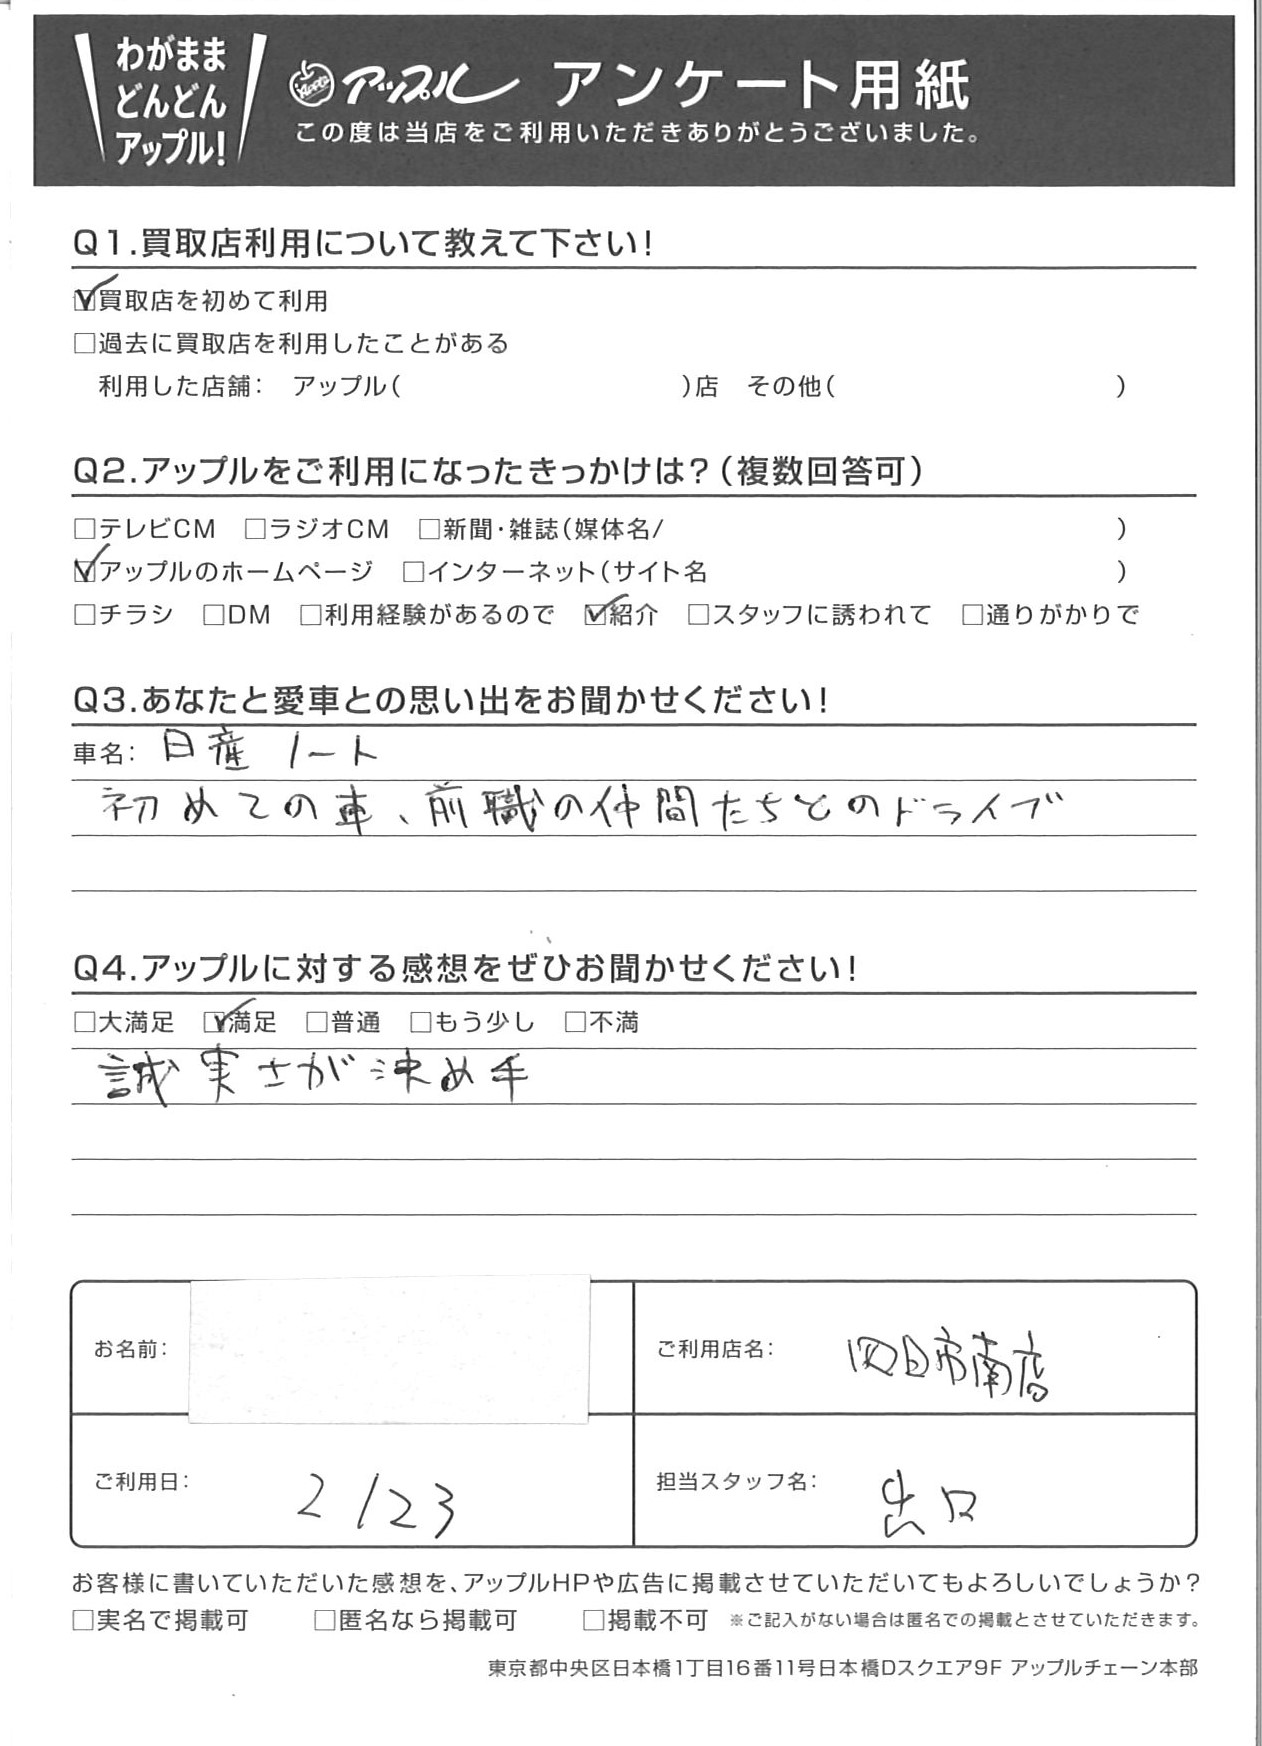 わがまま
どんどん
アップル!
アップル アンケート用紙
この度は当店をご利用いただきありがとうございました。
Q1.買取店利用について教えて下さい!
☑買取店を初めて利用
□過去に買取店を利用したことがある
利用した店舗: アップル( )店 その他( )
Q2.アップルをご利用になったきっかけは?(複数回答可)
□テレビCM □ラジオCM □新聞・雑誌(媒体名/ )
☑アップルのホームページ □インターネット(サイト名 )
□チラシ □DM □利用経験があるので ☑紹介 □スタッフに誘われて □通りがかりで
Q3.あなたと愛車との思い出をお聞かせください!
車名: 日産 ノート
初めての車、前職の仲間たちとのドライブ
Q4.アップルに対する感想をぜひお聞かせください!
□大満足 ☑満足 □普通 □もう少し □不満
誠実さが決め手
お名前:
ご利用店名: 四日市南店
ご利用日: 2/23
担当スタッフ名: 出口
お客様に書いていただいた感想を、アップルHPや広告に掲載させていただいてもよろしいでしょうか?
□実名で掲載可 □匿名なら掲載可 □掲載不可 ※ご記入がない場合は匿名での掲載とさせていただきます。
東京都中央区日本橋1丁目16番11号日本橋Dスクエア9F アップルチェーン本部